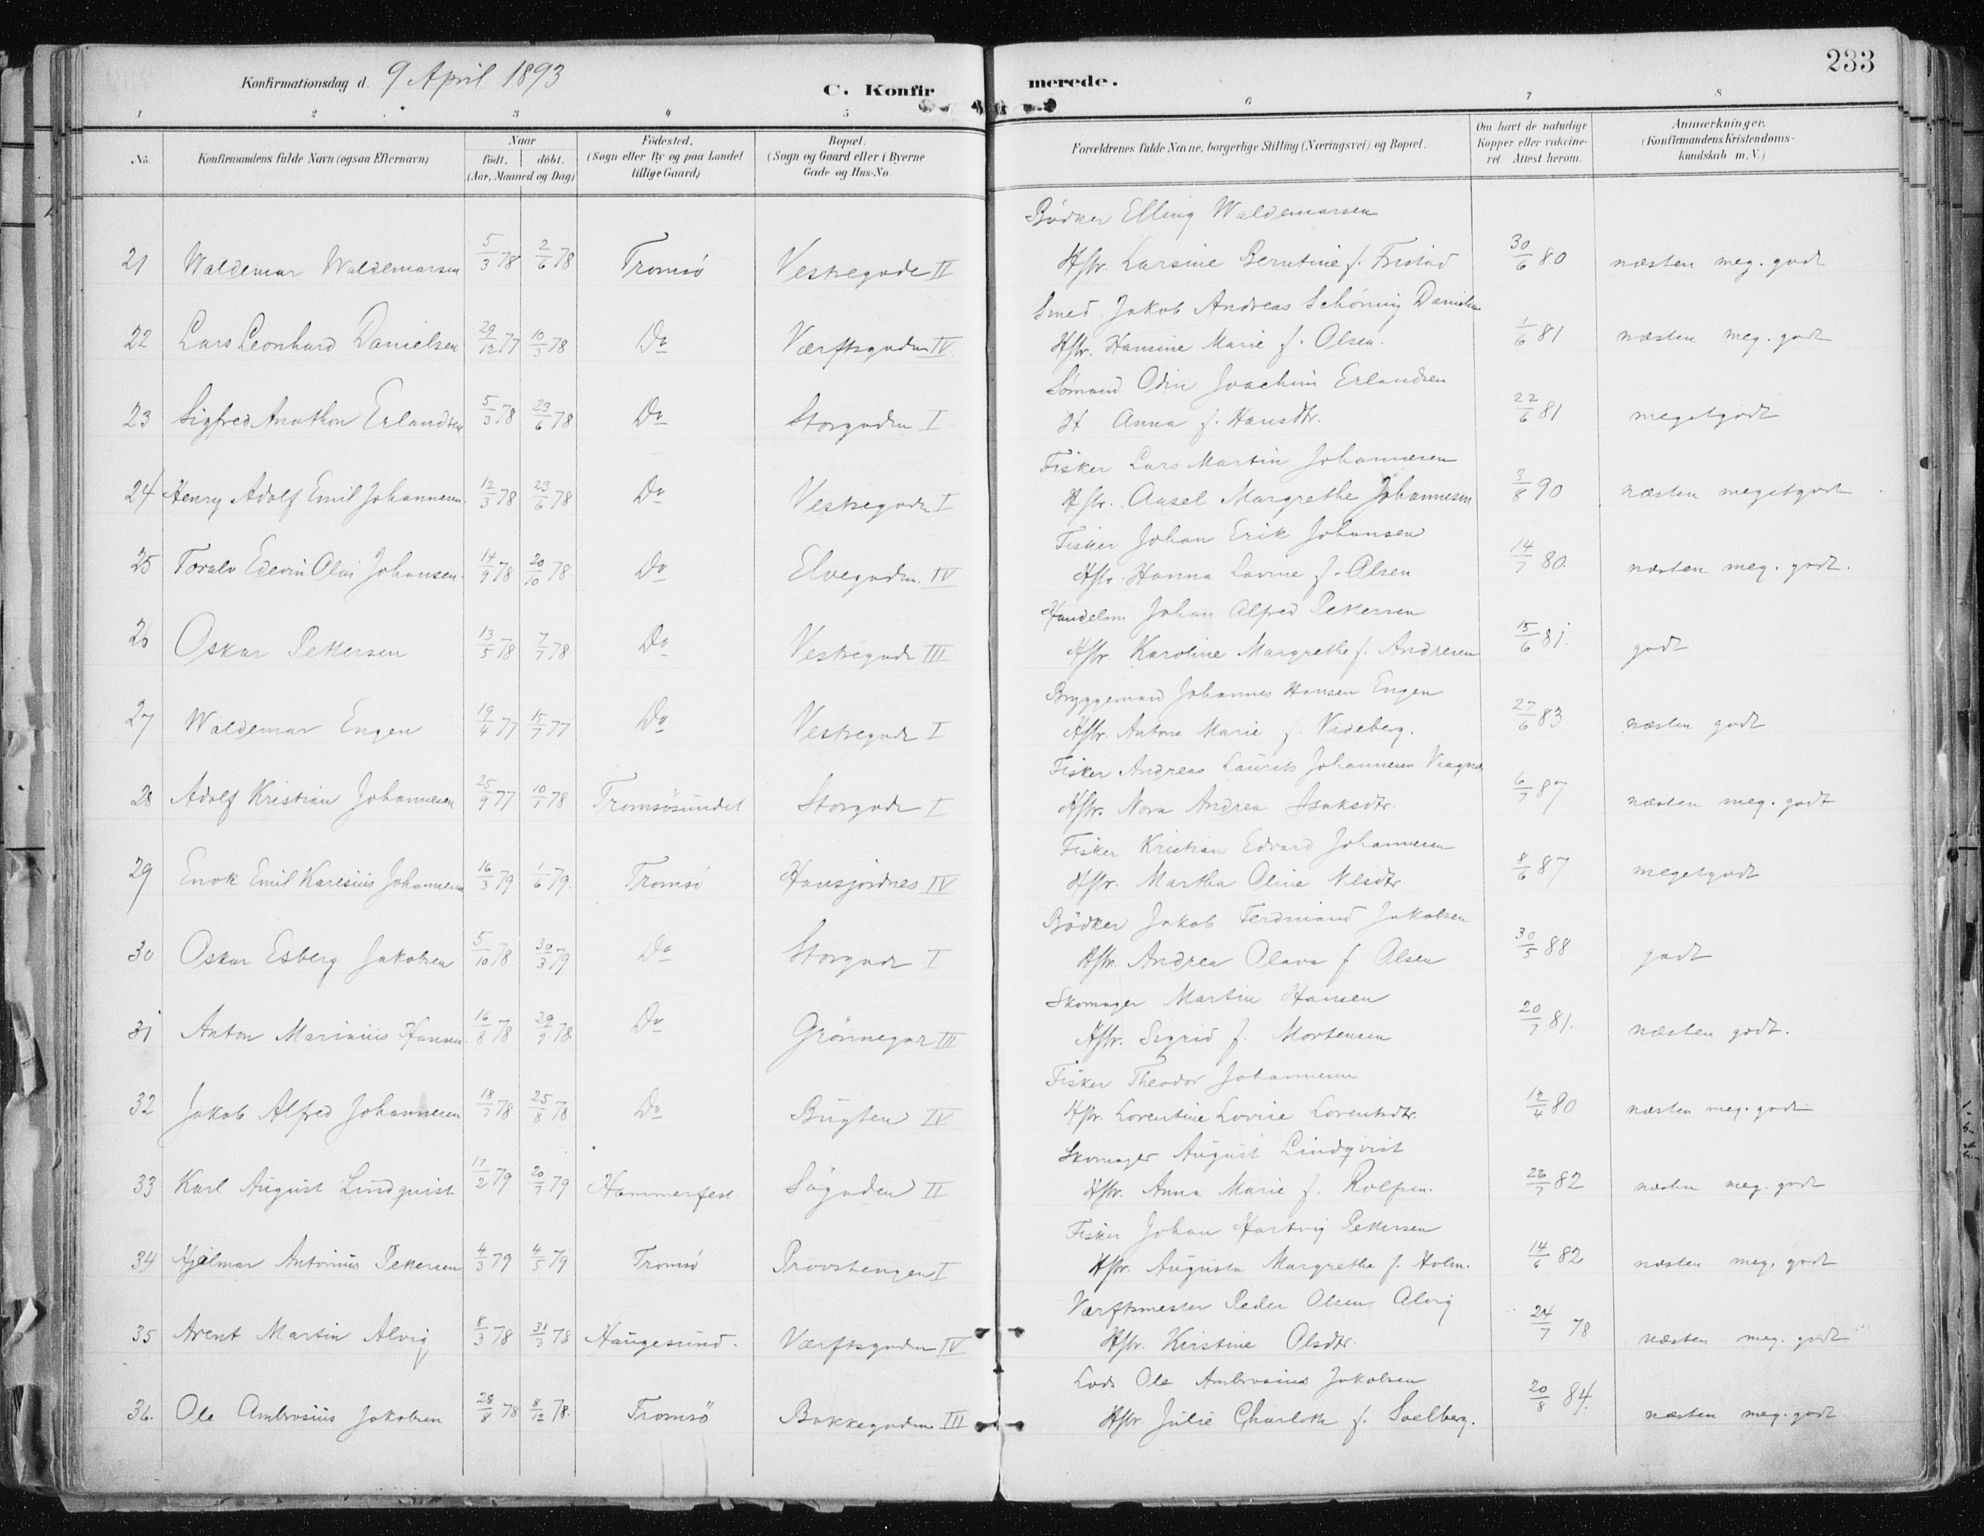 233
Konfirmationsdag d. 9 April 1893
C. Konfirmerede.
1 2 3 4 5 6 7 8
No. Konfirmandens fulde Navn (ogsaa Efternavn) Naar födt. döbt. (Aar, Maaned og Dag) Födested. (Sogn eller By og paa Landet tillige Gaard) Bopæl. (Sogn og Gaard eller i Byerne Gade og Hus-No. Forældrenes fulde Navne, borgerlige Stilling (Næringsvei) og Bopæl. Om havt de naturlige Kopper eller vakcineret. Attest herom. Anmærkninger. (Konfirmandens Kristendomskundskab m. V.)
Bödker Elling Waldemarsen
21 Waldemar Waldemarsen 5/3 78 2/6 78 Tromsö Vestregade II Hstr. Larsine Berntine f. Fristad 30/6 80 næsten meg. godt
Smed Jakob Andreas Schöning Danielsen
22 Lars Leonhard Danielsen 29/12 77 10/3 78 Do Værftsgaden IV. Hstr. Hansine Marie f. Olsen. 1/6 81 næsten meg. godt
Sömand Odin Joachim Erlandsen
23 Sigfred Anathon Erlandsen 5/3 78 23/6 78 Do Storgaden I H Anna f. Hansdtr. 22/6 81 megetgodt
Fisker Lars Martin Johannesen
24 Henry Adolf Emil Johannesen 12/3 78 23/6 78 Do Vestregaden I Hstr. Aasel Margrethe Johannesen 3/8 90 næsten megetgodt
Fisker Johan Erik Johansen
25 Toralv Edevin Olai Johansen. 14/9 78 20/10 78 Do Elvegaden IV Hstr. Hanna Lovise f. Olsen 14/7 80. næsten meg. godt.
Handelsm Johan Alfred Pettersen
26 Oskar Pettersen 13/5 78 7/7 78 Do Vestregade III Hstr. Karoline Margrethe f. Andresen 15/6 81. godt
Bryggemand Johannes Hansen Engen
27 Waldemar Engen 19/4 77 15/7 77 Do Vestregade I Hstr. Antone Marie f. Videberg. 27/6 83 næsten godt
Fisker Andreas Laurits Johannesen
28 Adolf Kristian Johannesen 25/9 77 10/7 78 Tromsösundet Storgade I Hstr. Nora Andrea Isaksdtr. 6/7 87 næsten meg. godt
Fisker Kristian Edvard Johannesen
29 Enok Emil Karesius Johannesen 16/3 79 1/6 79. Tromsö Hansjordnes IV Hstr. Martha Oline Nilsdtr 8/6 87 megetgodt
Bödker Jakob Ferdinand Jakobsen
30 Oskar Esberg Jakobsen 5/10 78 30/3 79 Do Storgade I Hstr. Andrea Olava f Olsen 30/5 88 godt
Skomager Martin Hansen
31 Anton Marinius Hansen. 16/8 78 29/9 78. Do Grönnegad III Hstr. Sigrid f. Mortensen 20/7 81. næsten godt.
Fisker Theodor Johannesen
32 Jakob Alfred Johannesen 18/7 78 25/8 78 Do Bugten IV Hstr. Lorentine Lovise Lorentsdtr. 12/4 80 næsten meg. godt
Skomager August Lindqvist
33 Karl August Lindqvist 17/2 79 20/7 79 Hammerfest Sögaden II Hstr. Anna Marie f. Rolfsen. 26/7 82 næsten meg. godt
Fisker Johan Hartvig Pettersen
34 Hjalmar Antonius Pettersen 4/3 79 4/5 79 Tromsö Provstengen I Hstr. Augusta Margrethe f. Holm. 14/6 82 næsten meg. godt
Værftsmester Peder Olsen Alvig
35 Arent Martin Alvig 8/3 78 31/3 78 Haugesund. Værftsgaden IV Hstr. Kirstine Olsdtr. 24/7 78 næsten meg. godt
Lods Ole Ambrosius Jakobsen
36. Ole Ambrosius Jakobsen 28/8 78 8/12 78. Tromsö Bakkegaden III Hstr. Julie Charlotte f. Soelberg. 20/8 84. næsten meg. godt